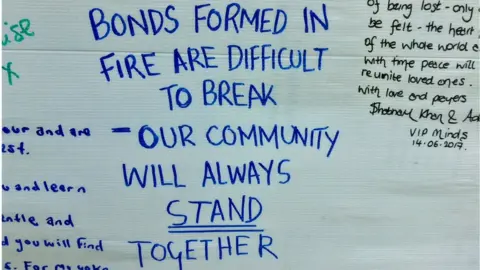 ise
x
our and are
est.
and learn
entle and
d you will find
BONDS FORMED IN
FIRE ARE DIFFICULT
TO BREAK
- OUR COMMUNITY
WILL ALWAYS
STAND
TOGETHER
of being lost - only
be felt - the heart
of the whole world
with time peace will
reunite loved ones.
with love and prayers
Khan &
VIP Minds
14.06.2017.